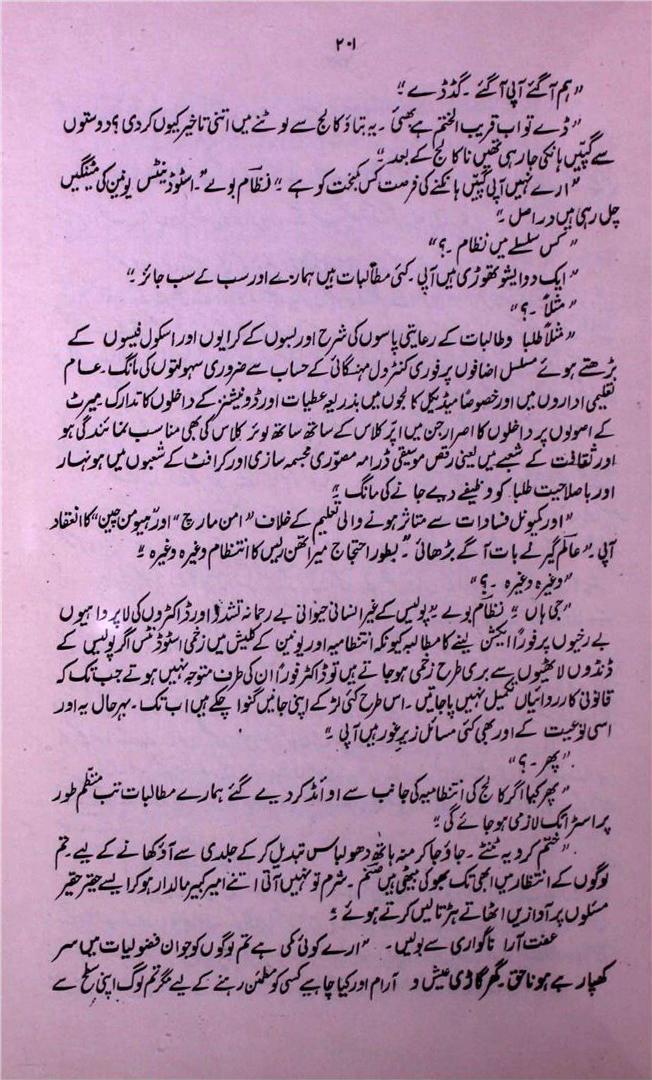 ۲۰۱
"ہم آگئے آپی آگئے ۔ گڈ ڈے ۔"
"ڈے تو اب قریب الختم ہے بھئی ۔ یہ بتاؤ کالج سے لوٹنے میں اتنی تاخیر کیوں کر دی ؟ دوستوں
سے گپیں ہانکی جا رہی تھیں نا کالج کے بعد ۔"
"ارے نہیں آپی گپیں ہانکنے کی فرصت کس کمبخت کو ہے ۔" نظام بولے ۔ "اسٹوڈینٹس یونین کی میٹنگیں
چل رہی ہیں دراصل ۔"
"کس سلسلے میں نظام ۔؟"
"ایک دو ایشو تھوڑی ہیں آپی ۔ کئی مطالبات ہیں ہمارے اور سب کے سب جائز ۔"
"مثلاً ۔؟"
"مثلاً طلبا و طالبات کے رعایتی پاسوں کی شرح اور بسوں کے کرایوں اور اسکول فیسوں کے
بڑھتے ہوئے مسلسل اضافوں پر فوری کنٹرول مہنگائی کے حساب سے ضروری سہولتوں کی مانگ ۔ عام
تعلیمی اداروں میں اور خصوصاً میڈیکل کالجوں میں بذریعہ عطیات اور ڈونیشنز کے داخلوں کا تدارک ۔ میرٹ
کے اصولوں پر داخلوں کا اصرار جن میں اپّر کلاس کے ساتھ ساتھ لوئر کلاس کی بھی مناسب نمائندگی ہو
اور ثقافت کے شعبے میں یعنی رقص موسیقی ڈرامہ مصوری مجسمہ سازی اور کرافٹ کے شعبوں میں ہونہار
اور باصلاحیت طلبا کو وظیفے دیے جانے کی مانگ ۔"
"اور کمیونل فسادات سے متاثر ہونے والی تعلیم کے خلاف "امن مارچ" اور "ہیومن چین" کا انعقاد
آپی ۔" عالم گیر نے بات آگے بڑھائی ۔ "بطور احتجاج میراتھن ریس کا انتظام وغیرہ وغیرہ ۔"
"وغیرہ وغیرہ ۔؟"
"جی ہاں ۔" نظام بولے ۔ "پولیس کے غیر انسانی حیوانی بے رحمانہ تشدد اور ڈاکٹروں کی لاپرواہیوں
بے رخیوں پر فوراً ایکشن لینے کا مطالبہ کیونکہ انتظامیہ اور یونین کے کلیش میں زخمی اسٹوڈنٹس اگر پولیس کے
ڈنڈوں لاٹھیوں سے بری طرح زخمی ہو جاتے ہیں تو ڈاکٹر فوراً ان کی طرف متوجہ نہیں ہوتے جب تک کہ
قانونی کارروائیاں تکمیل نہیں پا جاتیں ۔ اس طرح کئی لڑکے اپنی جانیں گنوا چکے ہیں اب تک ۔ بہرحال یہ اور
اسی نوعیت کے اور بھی کئی مسائل زیر غور ہیں آپی ۔"
"پھر ۔؟"
"پھر کیا اگر کالج کی انتظامیہ کی جانب سے اوائڈ کر دیے گئے ہمارے مطالبات تب منظّم طور
پر اسٹرائک لازمی ہو جائے گی ۔"
"ختم کرو یہ ٹنٹے ۔ جاؤ جا کر منہ ہاتھ دھو لباس تبدیل کر کے جلدی سے آؤ کھانے کے لیے ۔ تم
لوگوں کے انتظار میں ابھی تک بھوکی بیٹھی ہیں صنم ۔ شرم تو نہیں آتی اتنے امیر کبیر مالدار ہو کر ایسے حقیر حقیر
مسئلوں پر آوازیں اٹھاتے ہڑتالیں کرتے ہوئے ۔"
عفت آرا ناگواری سے بولیں ۔ "ارے کوئی کمی ہے تم لوگوں کو جو ان فضولیات میں سر
کھپا رہے ہو ناحق ۔ گھر گاڑی عیش و آرام اور کیا چاہیے کسی کو مطمئن رہنے کے لیے مگر تم لوگ اپنی سطح سے